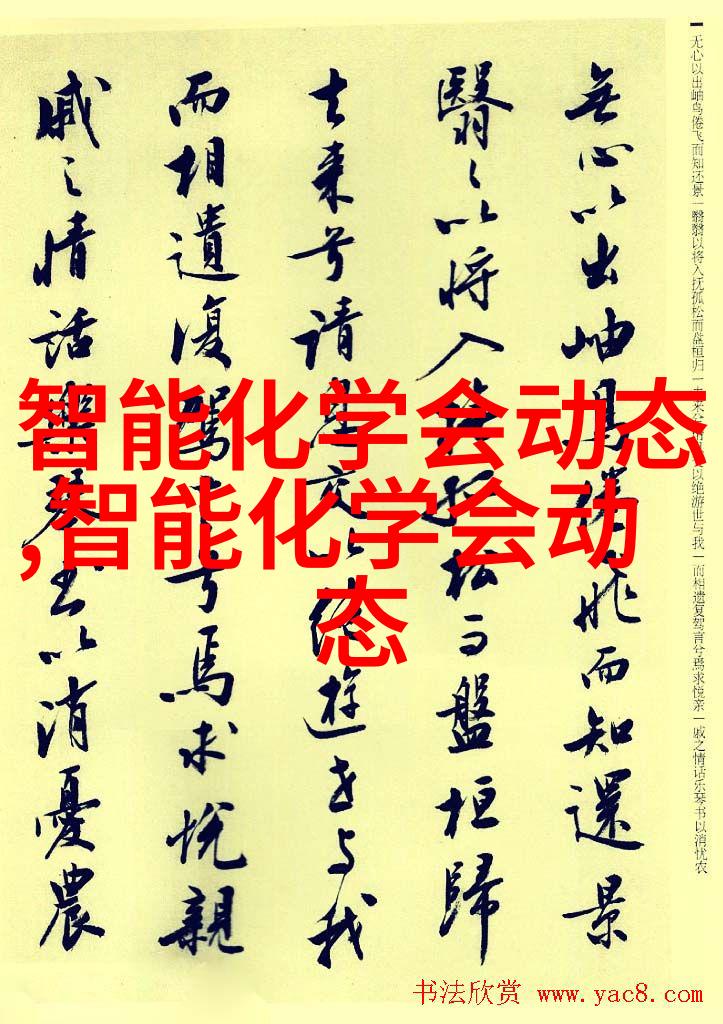 无心以出岫鸟倦飞而知还景一翳翳以将入抚孤松而盘桓归一去来以绝游世与我一而相遗复驾言兮焉求悦亲一戚之情话乐琴书以消忧农
無心以出岫鳥倦飛而知還景
翳々以将入撫孤松而盤桓歸
去来兮请息交以绝遊世与我
而相遺復駕言兮焉求悦親
戚之情話樂琴书以消憂農
智能化学会动态
,智能化学会动
态
书法欣赏 www.yac8.com